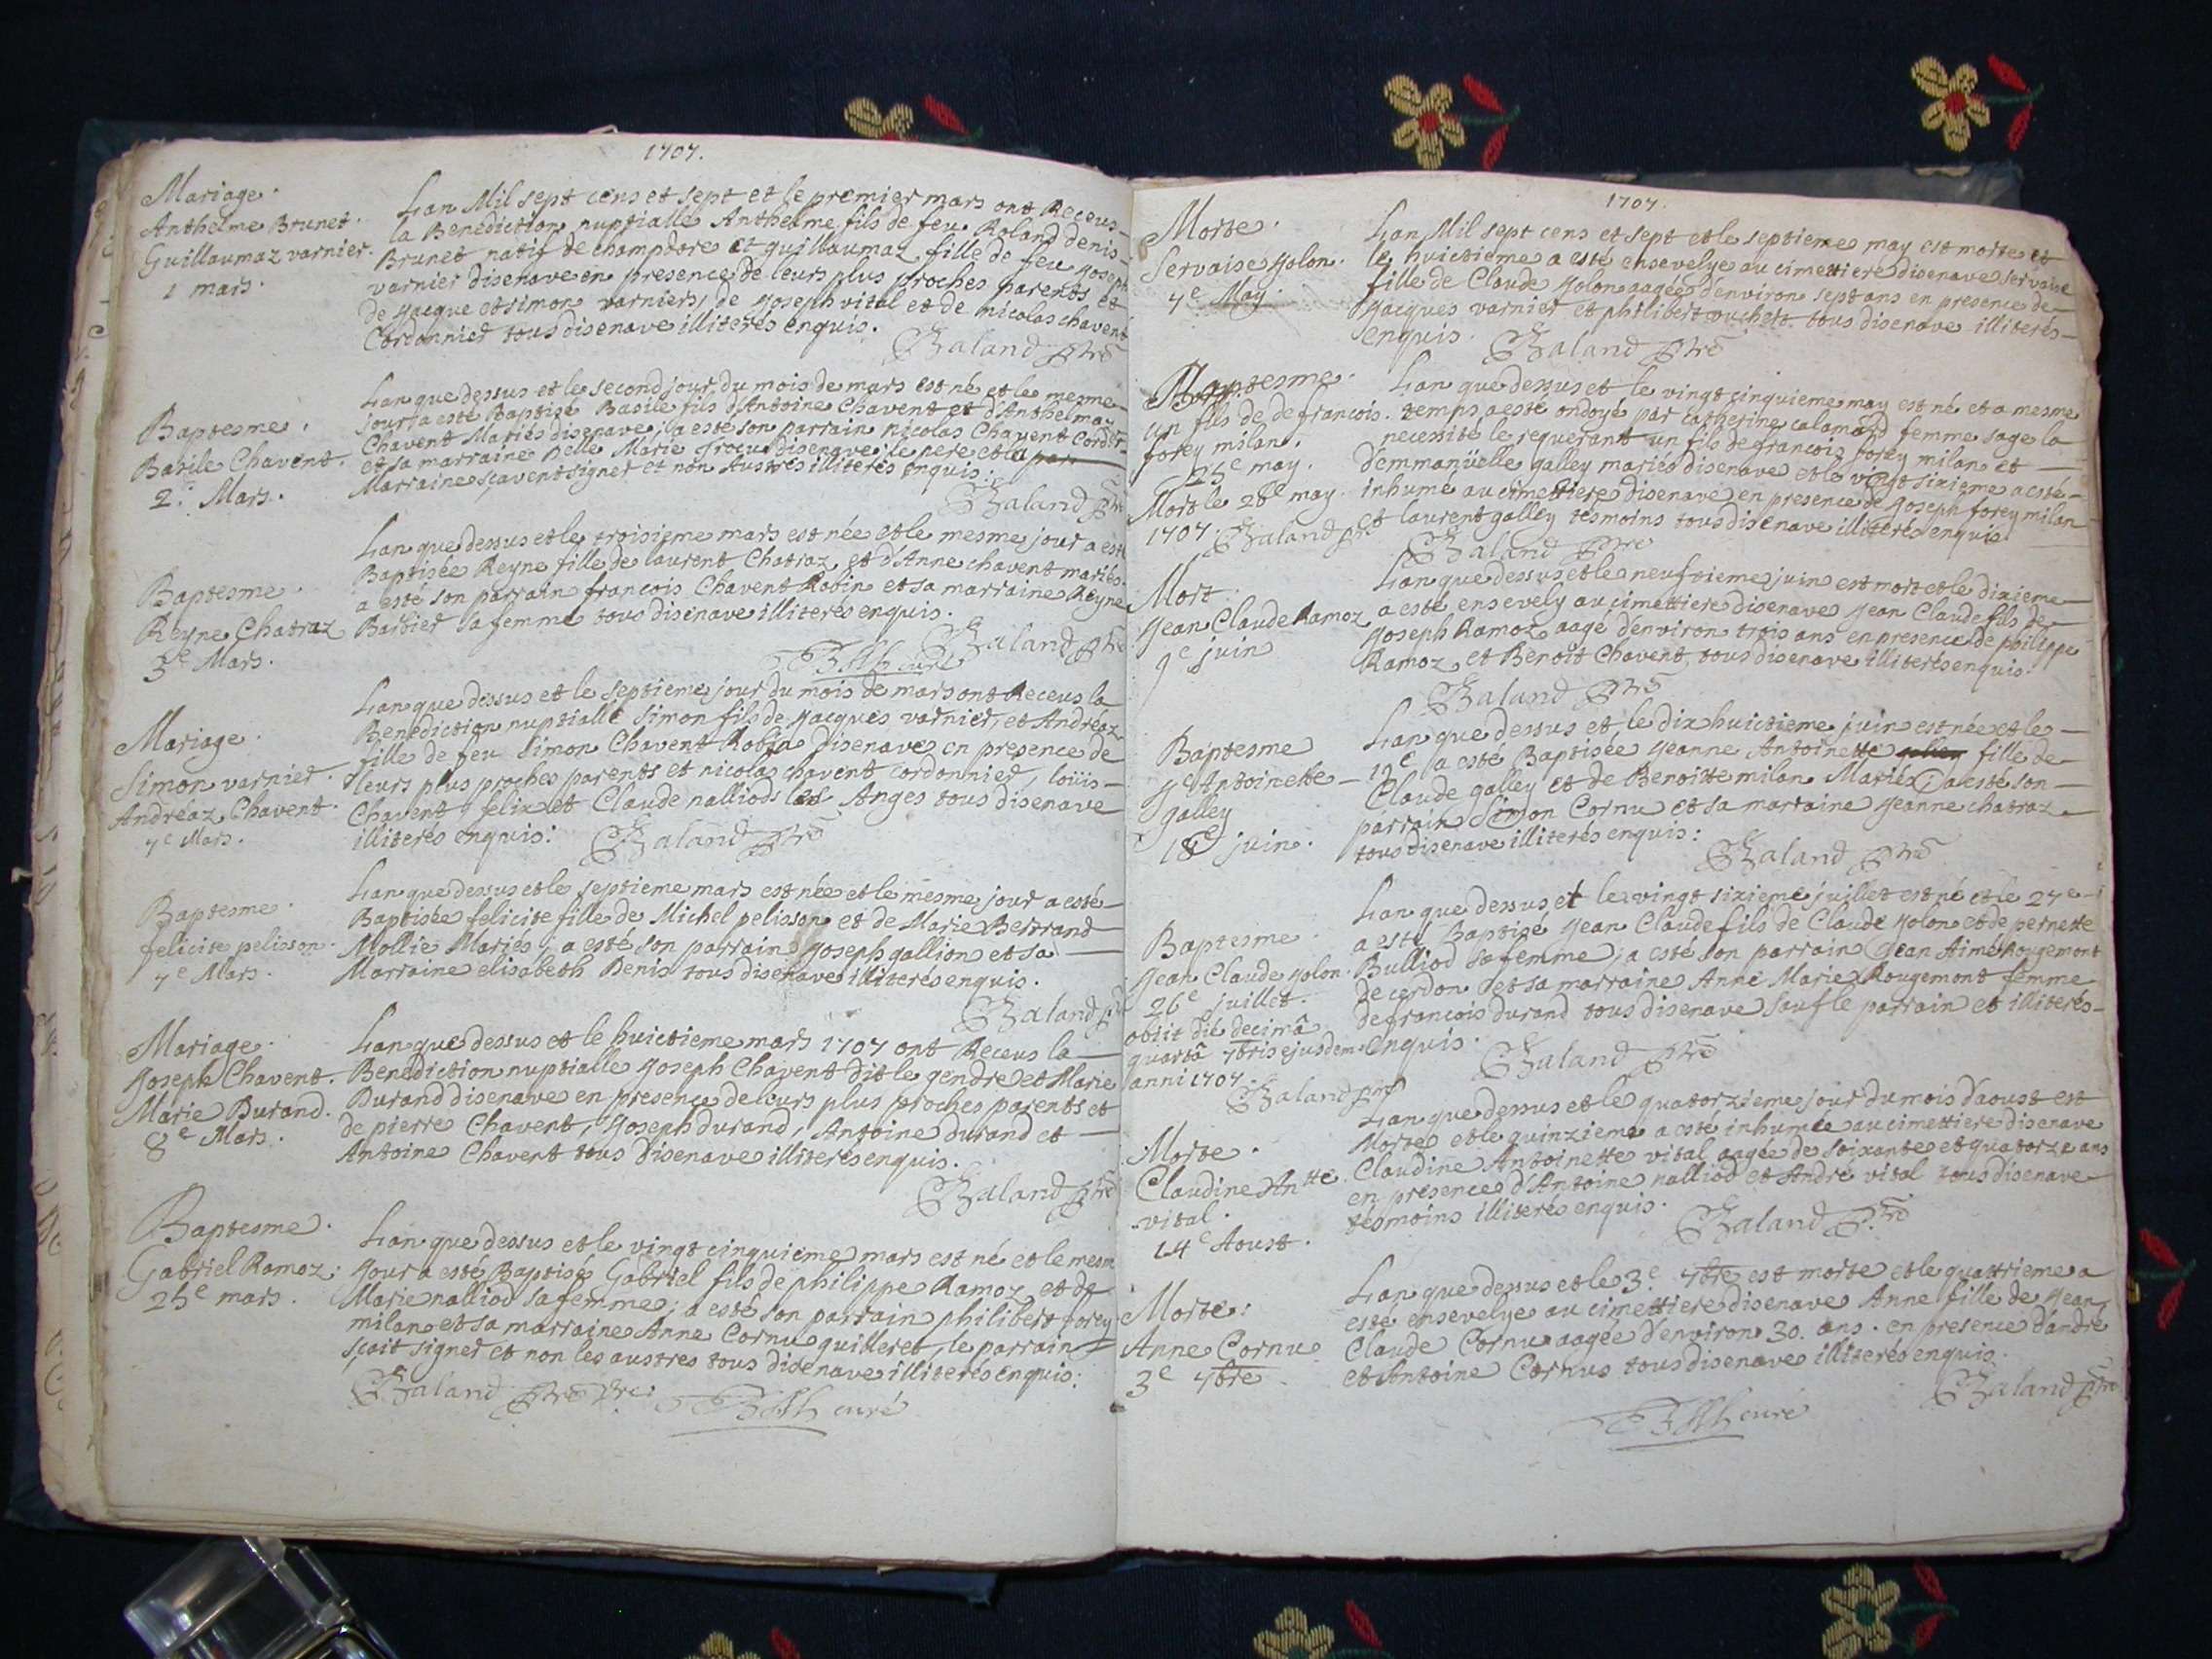 1707.
Mariage.
Anthelme Brunet.
Guillaumaz varnier.
1 mars.
Lan Mil sept cens et sept et le premier mars ont Receus
la Benediction nuptialle Anthelme fils de feu Roland denis
Brunet natif de champdore et guillaumaz fille de feu Joseph
varnier disenave en presence de leurs plus proches parents et
de Jacque et simon varniers, de Joseph vital et de nicolas chavent
Cordonnier tous disenave illiterés enquis.
Baland ptre
Baptesme.
Basile Chavent.
2e Mars.
Lan que dessus et le second jour du mois de mars est né et le mesme
jour a esté Baptizé Basile fils d'Antoine Chavent et d'Anthelma
Chavent Mariés disenave; a esté son parrain nicolas Chavent Cordon
et sa marraine Delle Marie Trocu disenave; le pere et la
Marraine sçavent signer et non Austres illiterés enquis.
Baland ptre
Baptesme.
Reyne Chatraz
3e Mars.
Lan que dessus et le troisieme mars est née et le mesme jour a esté
Baptisée Reyne fille de laurent Chatraz et d'Anne chavent mariés.
a esté son parrain francois Chavent Robin et sa marraine Reyne
Barbier sa femme tous disenave illiterés enquis.
Baland ptre
curé
Mariage.
Simon varnier.
Andréaz Chavent.
7e Mars.
Lan que dessus et le septieme jour du mois de mars ont Receus la
Benediction nuptialle simon fils de Jacques varnier, et Andréaz
fille de feu Simon Chavent Robin disenave en presence de
leurs plus proches parents et nicolas chavent cordonnier, loüis
Chavent felix et Claude nalliods les Anges tous disenave
illiterés enquis:
Baland ptre
Baptesme.
felicite pelisson.
7e Mars.
Lan que dessus et le septieme mars est née et le mesme jour a esté
Baptisée felicite fille de Michel pelisson et de Marie Bertrand
Mollie Mariés; a esté son parrain Joseph gallion et sa
Marraine elisabeth Denis tous disenave illiterés enquis.
Baland ptre
Mariage.
Joseph Chavent.
Marie Durand.
8e Mars.
Lan que dessus et le huictieme mars 1707 ont Receus la
Benediction nuptialle Joseph Chavent dit le gendre et Marie
Durand disenave en presence de leurs plus proches parents et
de pierre Chavent, Joseph durand, Antoine durand et
Antoine Chavent tous disenave illiterés enquis.
Baland ptre
Baptesme.
Gabriel Ramoz.
25e mars.
Lan que dessus et le vingt cinquieme mars est né et le mesm
Jour a esté Baptisé Gabriel fils de philippe Ramoz et de
Marie nalliod sa femme; a esté son parrain philibert forey
milan et sa marraine Anne Cornu quilleret, le parrain
sçait signer et non les austres tous disenave illiterés enquis:
Baland ptre
curé
1707.
Morte.
Servaise Jolon.
7e May.
Lan Mil sept cens et sept et le septieme may est morte et
le huictieme a esté ensevelye au cimettiere disenave servaise
fille de Claude Jolon aagée denviron sept ans en presence de
Jacques varnier et philibert tous disenave illiterés
enquis.
Baland ptre
Baptesme.
un fils de de francois
forey milan.
25e may.
Mort le 26e may
1707. Baland ptre
Lan que dessus et le vingt cinquieme may est né et a mesme
temps a esté ondoyé par Catherine calamard femme sage la
necessité le requerant un fils de francois forey milan et
d'emmanüelle galley mariés disenave et le vingt sixieme a esté
inhumé au cimettiere disenave en presence de Joseph forey milan
et laurent galley tesmoins tous disenave illiterés enquis
Baland ptre
Mort
Jean Claude Ramoz
9e juin
Lan que dessus et le neufvieme juin est mort et le dixieme
a esté ensevely au cimettiere disenave Jean Claude fils de
Joseph Ramoz aagé denviron trois ans en presence de philippe
Ramoz et Benoit Chavent tous disenave illiterés enquis.
Baland ptre
Baptesme
Je Antoinette
galley
18e juin.
Lan que dessus et le dix huictieme juin est née et le
19e a esté Baptisée Jeanne Antoinette fille de
Claude galley et de Benoitte milan Mariés a esté son
parrain Simon Cornu et sa marraine Jeanne chatraz
tous disenave illiterés enquis:
Baland ptre
Baptesme
Jean Claude Jolon.
26e juillet.
obiit die decimâ
quartâ 7bris ejusdem
anni 1707.
Baland ptre
Lan que dessus et le vingt sixieme juillet est né et le 27e
a esté Baptizé Jean Claude fils de Claude Jolon et de pernette
Bulliod sa femme; a esté son parrain Jean Aimé Rougemont
de cerdon et sa marraine Anne Marie Rougemont femme
de francois durand tous disenave sauf le parrain et illiterés
enquis.
Baland ptre
Morte.
Claudine Antte
vital.
14e Aoust.
Lan que dessus et le quatorzieme jour du mois d'aoust est
Morte et le quinzieme a esté inhumée au cimettiere disenave
Claudine Antoinette vital aagée de soixante et quatorze ans
en presence d'Antoine nalliod et André vital tous disenave
tesmoins illiterés enquis.
Baland ptre
Morte:
Anne Cornu
3e 7bre
Lan que dessus et le 3e 7bre est morte et le quattrieme a
esté ensevelye au cimettiere disenave Anne fille de Jean
Claude Cornu aagée denviron 30. ans. en presence d'andré
et Antoine Cornus tous disenave illiterés enquis.
Baland ptre
curé